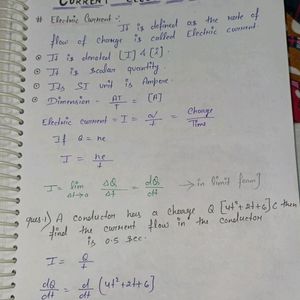 CURRENT
# Electric Current :-
It is defined as the rate of
flow of charge is called Electric current.
It is denoted [I] & [i].
It is scalar quantity.
It's SI unit is Ampere.
Dimension - AT/T = [A]
Electric current = I = Q/t = Charge/Time
If Q = ne
I = ne/t
I = lim Δt→0 ΔQ/Δt = dQ/dt → in limit form]
Ques:1) A conductor has a charge Q [4t²+2t+6] C then
find the current flow in the conductor
is 0.5 sec.
I = Q/t
dQ/dt = d/dt (4t²+2t+6]